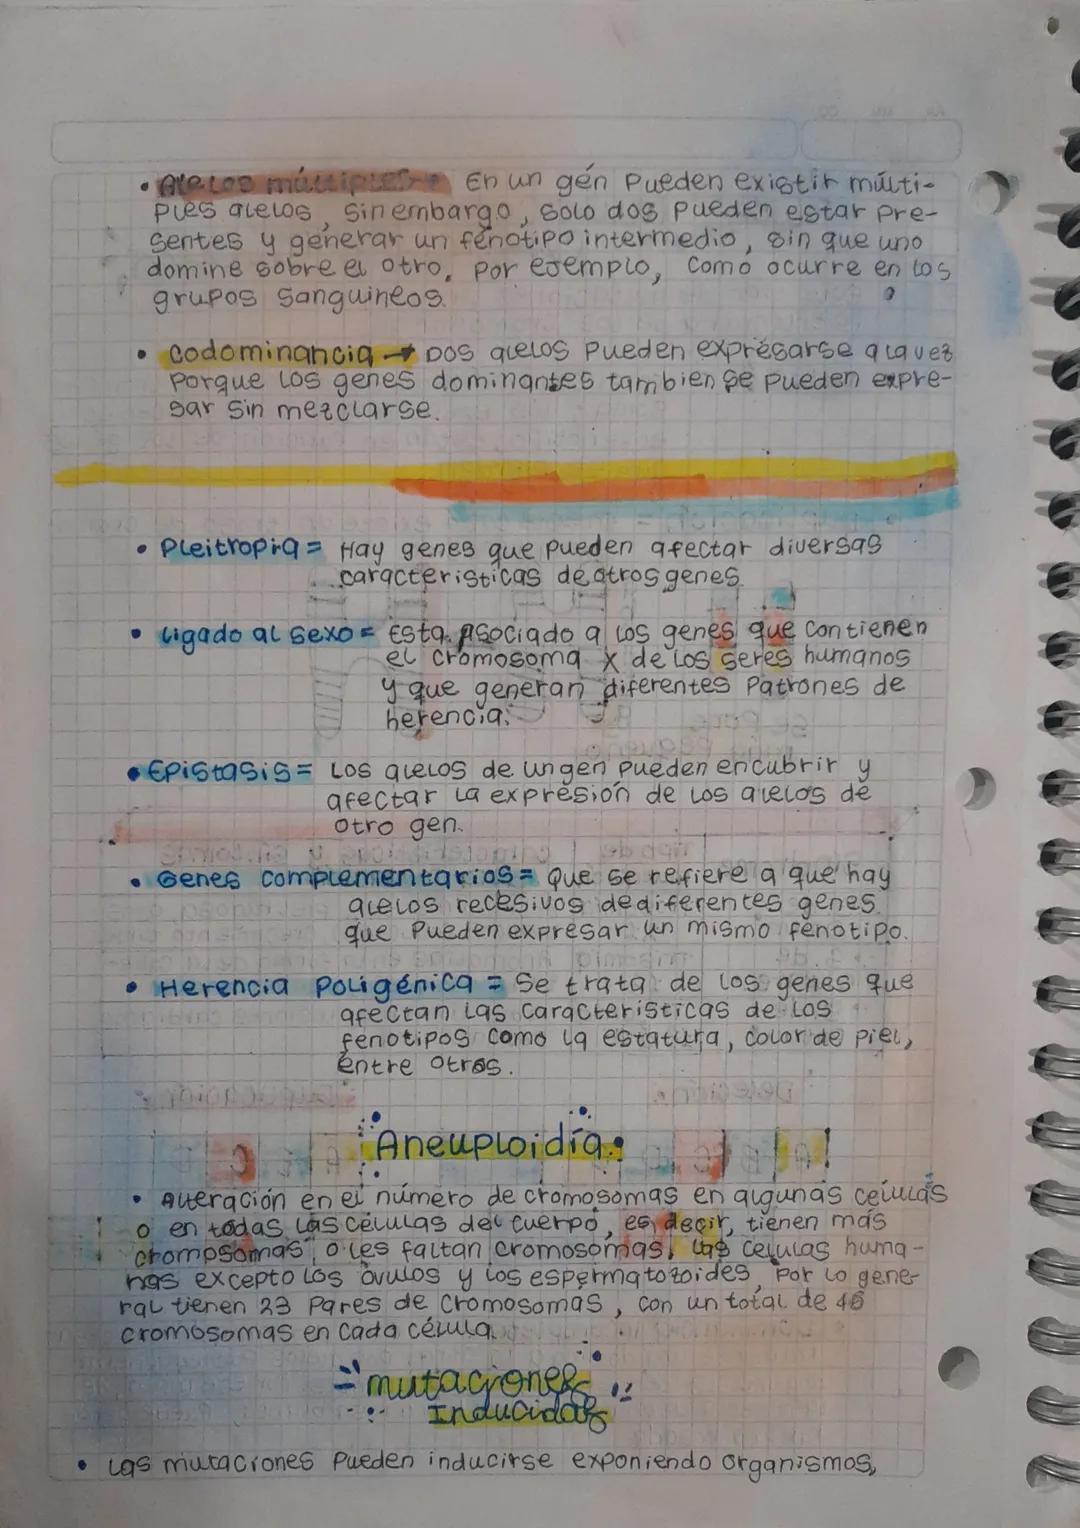 • Alelos múltiples → En un gén Pueden existir múlti-
Ples alelos, sin embargo, solo dos Pueden estar Pre-
sentes y generar un fenotipo intermedio, sin que uno
domine sobre el otro, Por ejemplo, Como ocurre en los
grupos sanguineos.
• codominancia → Dos alelos Pueden expresarse a la vez
Porque los genes dominantes tambien se pueden expre-
sar sin mezclarse.
• Pleitropia = Hay genes que pueden afectar diversas
caracteristicas de otros genes.
• Ligado al sexo = Esta Asociado a los genes que contienen
el cromosoma X de los seres humanos
y que generan diferentes Patrones de
herencia.
• Epistasis = Los alelos de un gen pueden encubrir y
afectar la expresión de los alelos de
otro gen.
• Genes complementarios = Que se refiere a que hay
alelos recesivos de diferentes genes
que Pueden expresar un mismo fenotipo.
• Herencia Poligénica = Se trata de los genes que
afectan las caracteristicas de los
fenotipos como la estatura, color de piel,
entre otros.
Aneuploidía.
• Alteración en el número de cromosomas en algunas celulas
o en todas las células del cuerpo, es decir, tienen más
cromosomas, o les faltan cromosomas, las celulas huma-
nas excepto los óvulos y los espermatozoides, Por lo gene-
ral tienen 23 Pares de Cromosomas, con un total de 46
cromosomas en cada célula.
mutaciones
Inducidas
• Las mutaciones Pueden inducirse exponiendo organismos,